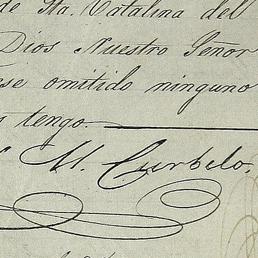 de Sta. Catalina del
Dios Nuestro Señor
se omitido ninguno
tengo.
M. Curbelo.